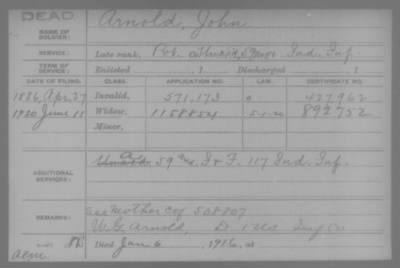 DEAD
NAME OF SOLDIER: Arnold, John
SERVICE: Late rank, Pvt. Ind. Inf.
TERM OF SERVICE: Enlisted , 1 Discharged , 1
DATE OF FILING. CLASS. APPLICATION NO. LAW. CERTIFICATE NO.
1886, Apr. 27 Invalid, 571.173 427962
1920 June 11 Widow, 1158854 892752
Minor,
ADDITIONAL SERVICES: 59 & F. 117 Ind. Inf.
REMARKS: see Mother Co 508807
W.G. Arnold,
Died Jan 6, 1916, at